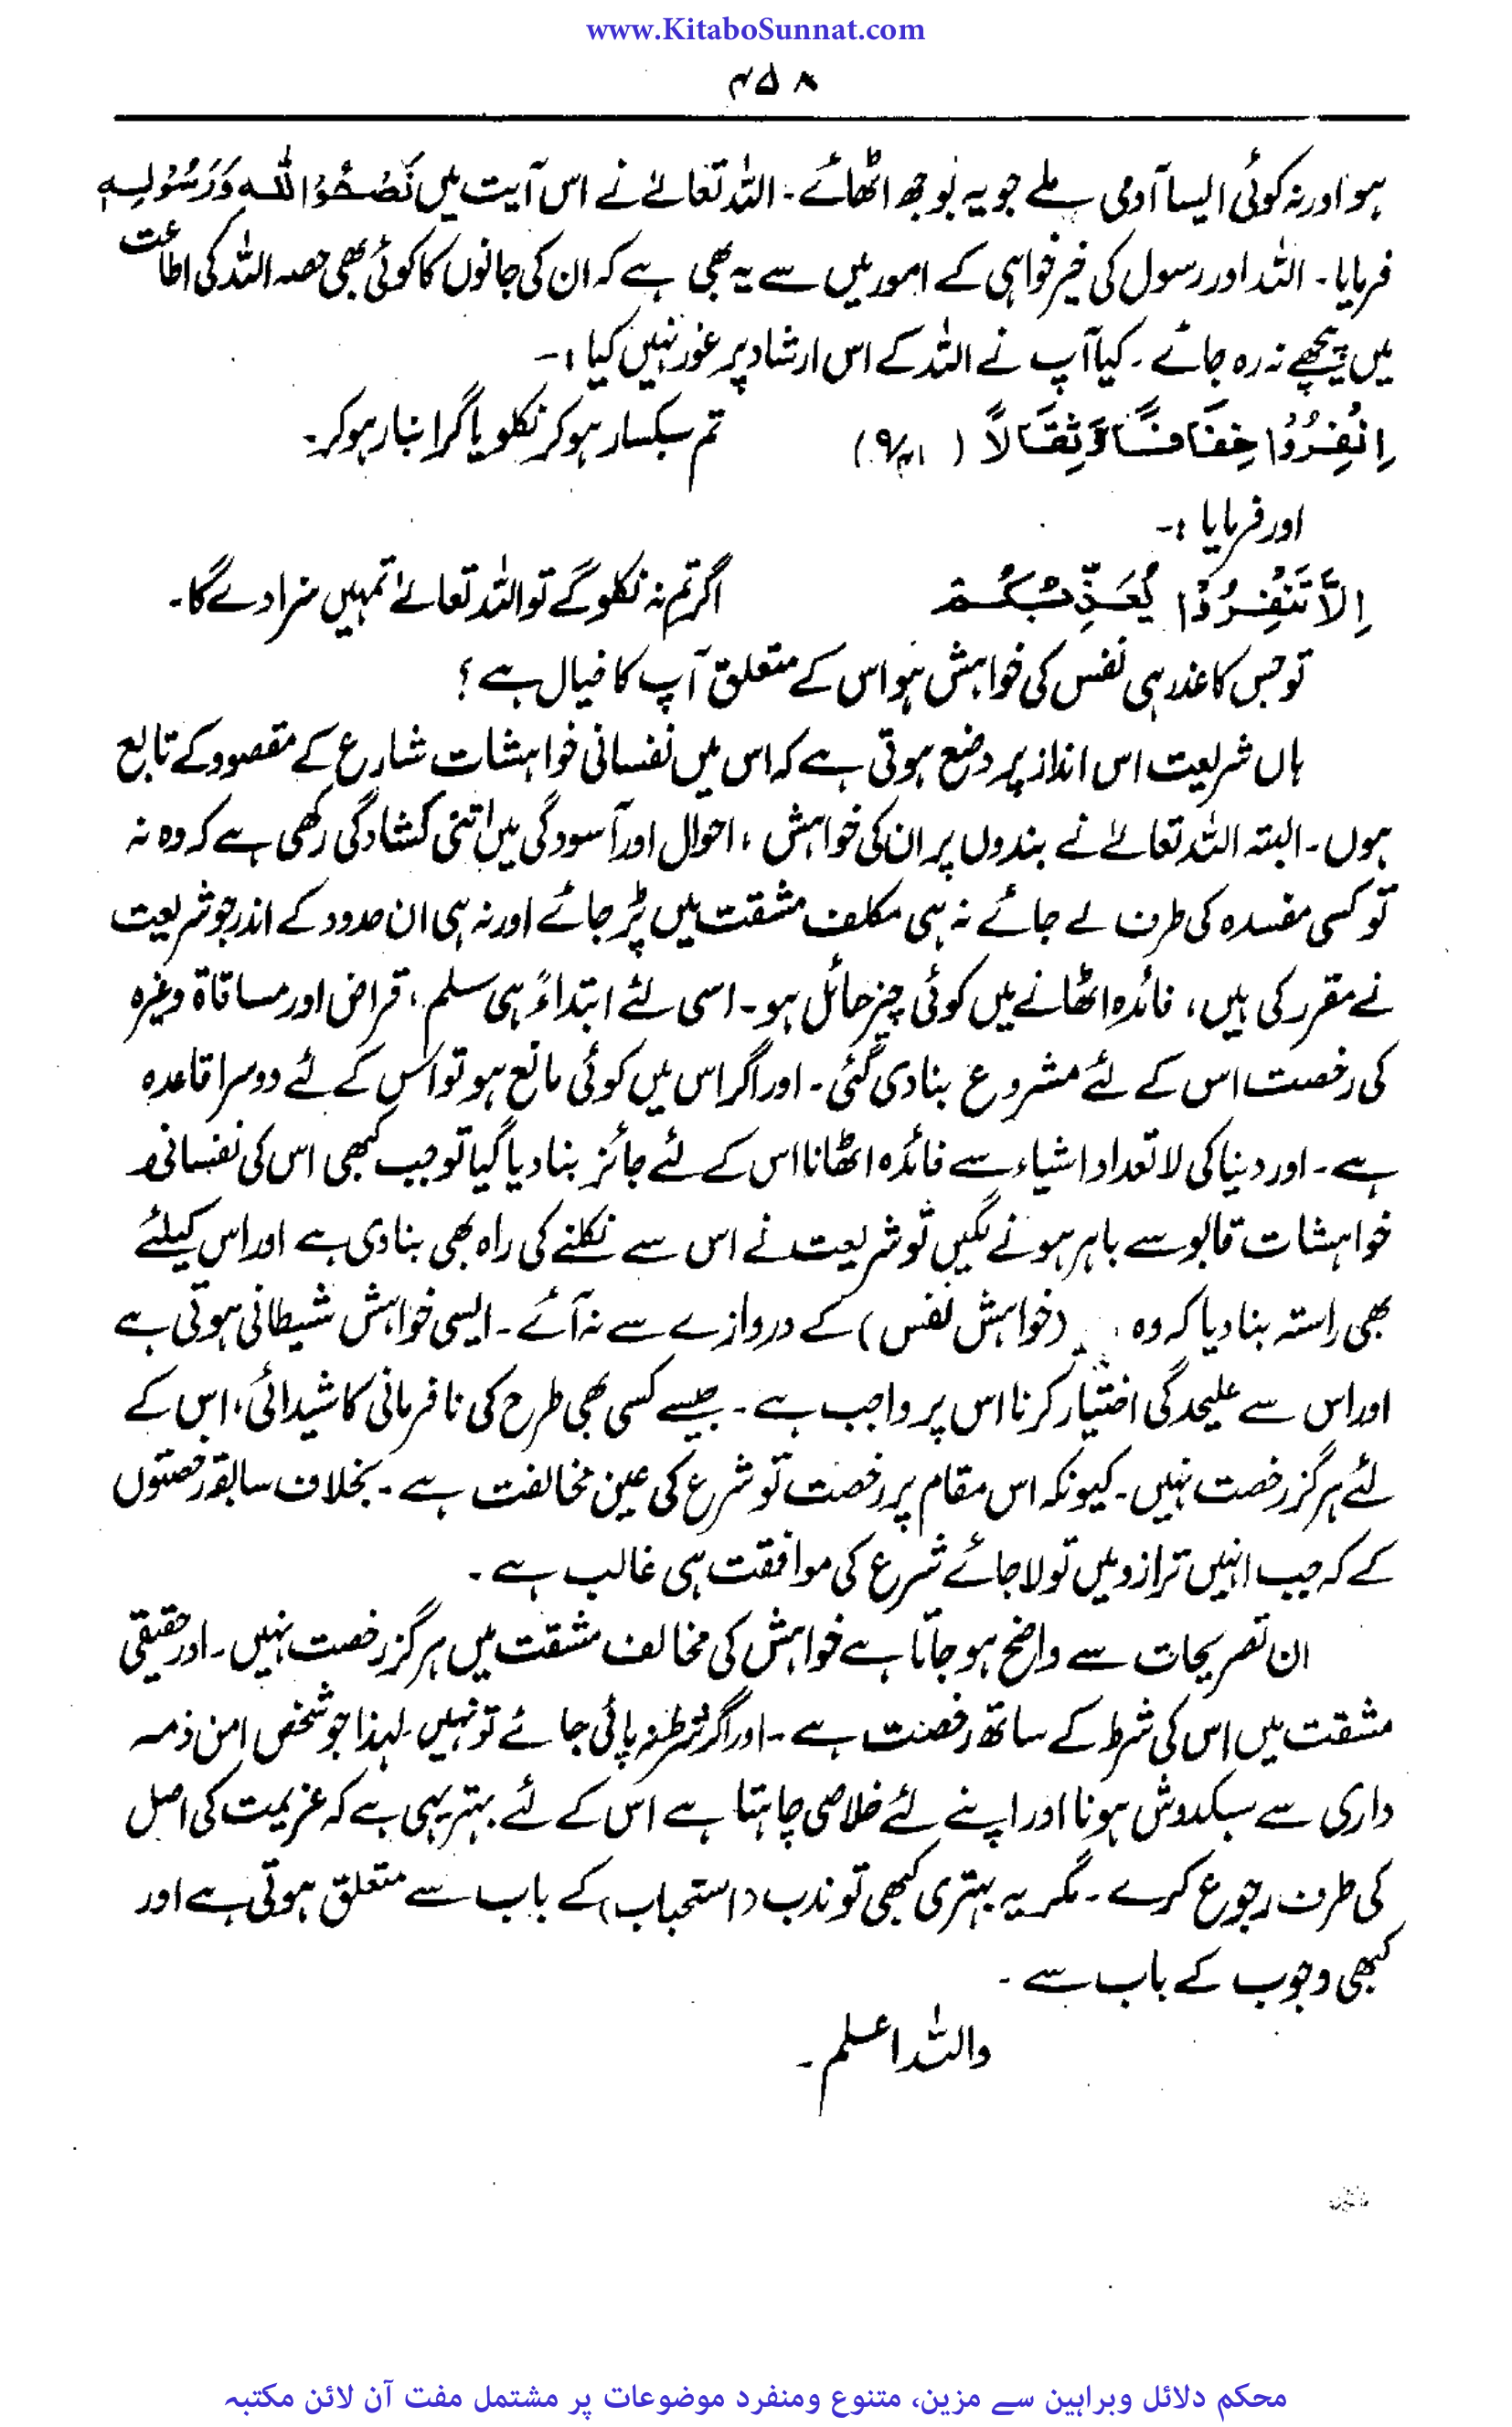 www.KitaboSunnat.com
۴۵۸
ہو اور نہ کوئی ایسا آدمی ملے جو یہ بوجھ اٹھائے۔ اللہ تعالےٰ نے اس آیت میں نَصَحُوْا لِلّٰہِ وَرَسُوْلِہٖ
فرمایا۔ اللہ اور رسول کی خیر خواہی کے امور میں سے یہ بھی ہے کہ ان کی جانوں کا کوئی بھی حصہ اللہ کی اطاعت
میں پیچھے نہ رہ جائے۔ کیا آپ نے اللہ کے اس ارشاد پر غور نہیں کیا :-
اِنْفِرُوْا خِفَافًا وَّثِقَالًا (۹/۴۱) تم سبکسار ہو کر نکلو یا گرانبار ہو کر۔
اور فرمایا :-
اِلَّا تَنْفِرُوْا یُعَذِّبْکُمْ اگر تم نہ نکلو گے تو اللہ تعالےٰ تمہیں سزا دے گا۔
تو جس کا عذر ہی نفس کی خواہش ہو اس کے متعلق آپ کا خیال ہے؟
ہاں شریعت اس انداز پر وضع ہوتی ہے کہ اس میں نفسانی خواہشات شارع کے مقصود کے تابع
ہوں۔ البتہ اللہ تعالےٰ نے بندوں پر ان کی خواہش، احوال اور آسودگی میں اتنی کشادگی رکھی ہے کہ وہ نہ
تو کسی مفسدہ کی طرف لے جائے نہ ہی مکلف مشقت میں پڑ جائے اور نہ ہی ان حدود کے اندر جو شریعت
نے مقرر کی ہیں، فائدہ اٹھانے میں کوئی چیز حائل ہو۔ اسی لئے ابتداءً ہی سلم، قراض اور مساقاۃ وغیرہ
کی رخصت اس کے لئے مشروع بنا دی گئی۔ اور اگر اس میں کوئی مانع ہو تو اس کے لئے دوسرا قاعدہ
ہے۔ اور دنیا کی لاتعداد اشیاء سے فائدہ اٹھانا اس کے لئے جائز بنا دیا گیا تو جب کبھی اس کی نفسانی
خواہشات قابو سے باہر ہونے لگیں تو شریعت نے اس سے نکلنے کی راہ بھی بنا دی ہے اور اس کیلئے
بھی راستہ بنا دیا کہ وہ (خواہش نفس) کے دروازے سے نہ آئے۔ ایسی خواہش شیطانی ہوتی ہے
اور اس سے علیحدگی اختیار کرنا اس پر واجب ہے۔ جیسے کسی بھی طرح کی نافرمانی کا شیدائی، اس کے
لئے ہرگز رخصت نہیں۔ کیونکہ اس مقام پر رخصت تو شرع کی عین مخالفت ہے۔ بخلاف سابقہ رخصتوں
کے کہ جب انہیں ترازو میں تولا جائے شرع کی موافقت ہی غالب ہے۔
ان تصریحات سے واضح ہو جاتا ہے خواہش کی مخالف مشقت میں ہرگز رخصت نہیں۔ اور حقیقی
مشقت میں اس کی شرط کے ساتھ رخصت ہے۔ اور اگر شرط نہ پائی جائے تو نہیں۔ لہذا جو شخص اس ذمہ
داری سے سبکدوش ہونا اور اپنے لئے خلاصی چاہتا ہے اس کے لئے بہتر یہی ہے کہ عزیمت کی اصل
کی طرف رجوع کرے۔ مگر یہ بہتری کبھی تو ندب (استحباب) کے باب سے متعلق ہوتی ہے اور
کبھی وجوب کے باب سے۔
واللہ اعلم۔
محکم دلائل وبراہین سے مزین، متنوع ومنفرد موضوعات پر مشتمل مفت آن لائن مکتبہ